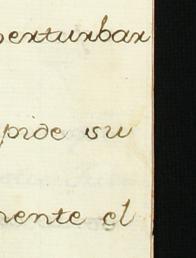 perturbar
pide su
mente el